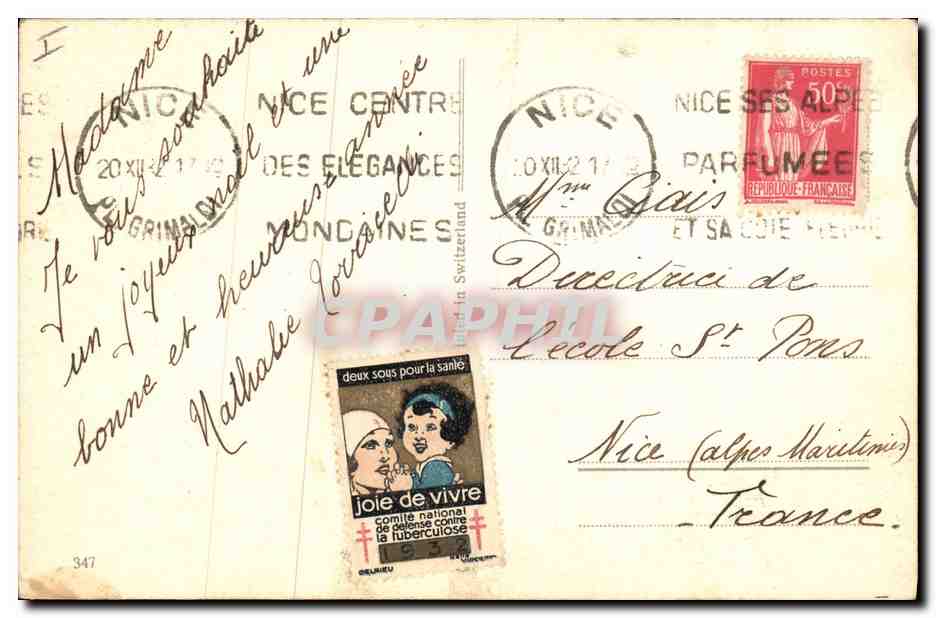 I
Madame
Je vous souhaite
un joyeux noël et une
bonne et heureuse année
Nathalie
347
NICE
20 XII
GRIMALDI
NICE CENTRE
DES ELEGANCES
MONDAINES
in Switzerland
NICE
GRIMALDI
NICE SES ALPES
PARFUMEES
ET SA COTE FLEURIE
POSTES
50c
REPUBLIQUE-FRANÇAISE
Mme Ciais
Directrice de
l'école St Pons
Nice (alpes Maritimes)
France
CPAPHIL
deux sous pour la santé
joie de vivre
comité national
de défense contre
la tuberculose
1932
DELRIEU